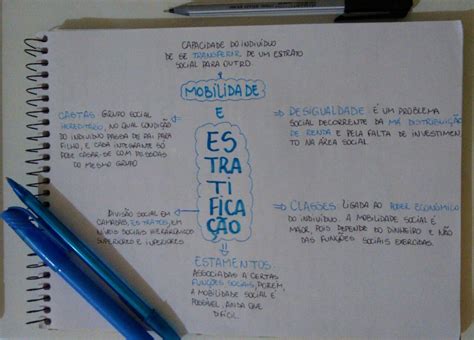 CAPACIDADE DO INDIVÍDUO
DE SE TRANSFERIR DE UM ESTRATO
SOCIAL PARA OUTRO
MOBILIDADE
E
ES
TRA
TI
FICA
ÇÃO
CASTAS: GRUPO SOCIAL
HEREDITÁRIO, NO QUAL CONDIÇÃO
DO INDIVÍDUO PASSA DE PAI PARA
FILHO, E CADA INTEGRANTE SÓ
PODE CASAR-SE COM PESSOAS
DO MESMO GRUPO
DESIGUALDADE É UM PROBLEMA
SOCIAL DECORRENTE DA MÁ DISTRIBUIÇÃO
DE RENDA E PELA FALTA DE INVESTIMENTO
NA ÁREA SOCIAL
DIVISÃO SOCIAL EM
CAMADAS, ESTRATOS, EM
NÍVEIS SOCIAIS HIERÁRQUICO
SUPERIORES E INFERIORES
CLASSES LIGADA AO PODER ECONÔMICO
DO INDIVÍDUO. A MOBILIDADE SOCIAL É
MAIOR, POIS DEPENDE DO DINHEIRO E NÃO
DAS FUNÇÕES SOCIAIS EXERCIDAS.
ESTAMENTOS
ASSOCIADAS A CERTAS
FUNÇÕES SOCIAIS, PORÉM,
A MOBILIDADE SOCIAL É
POSSÍVEL, AINDA QUE
DIFÍCIL